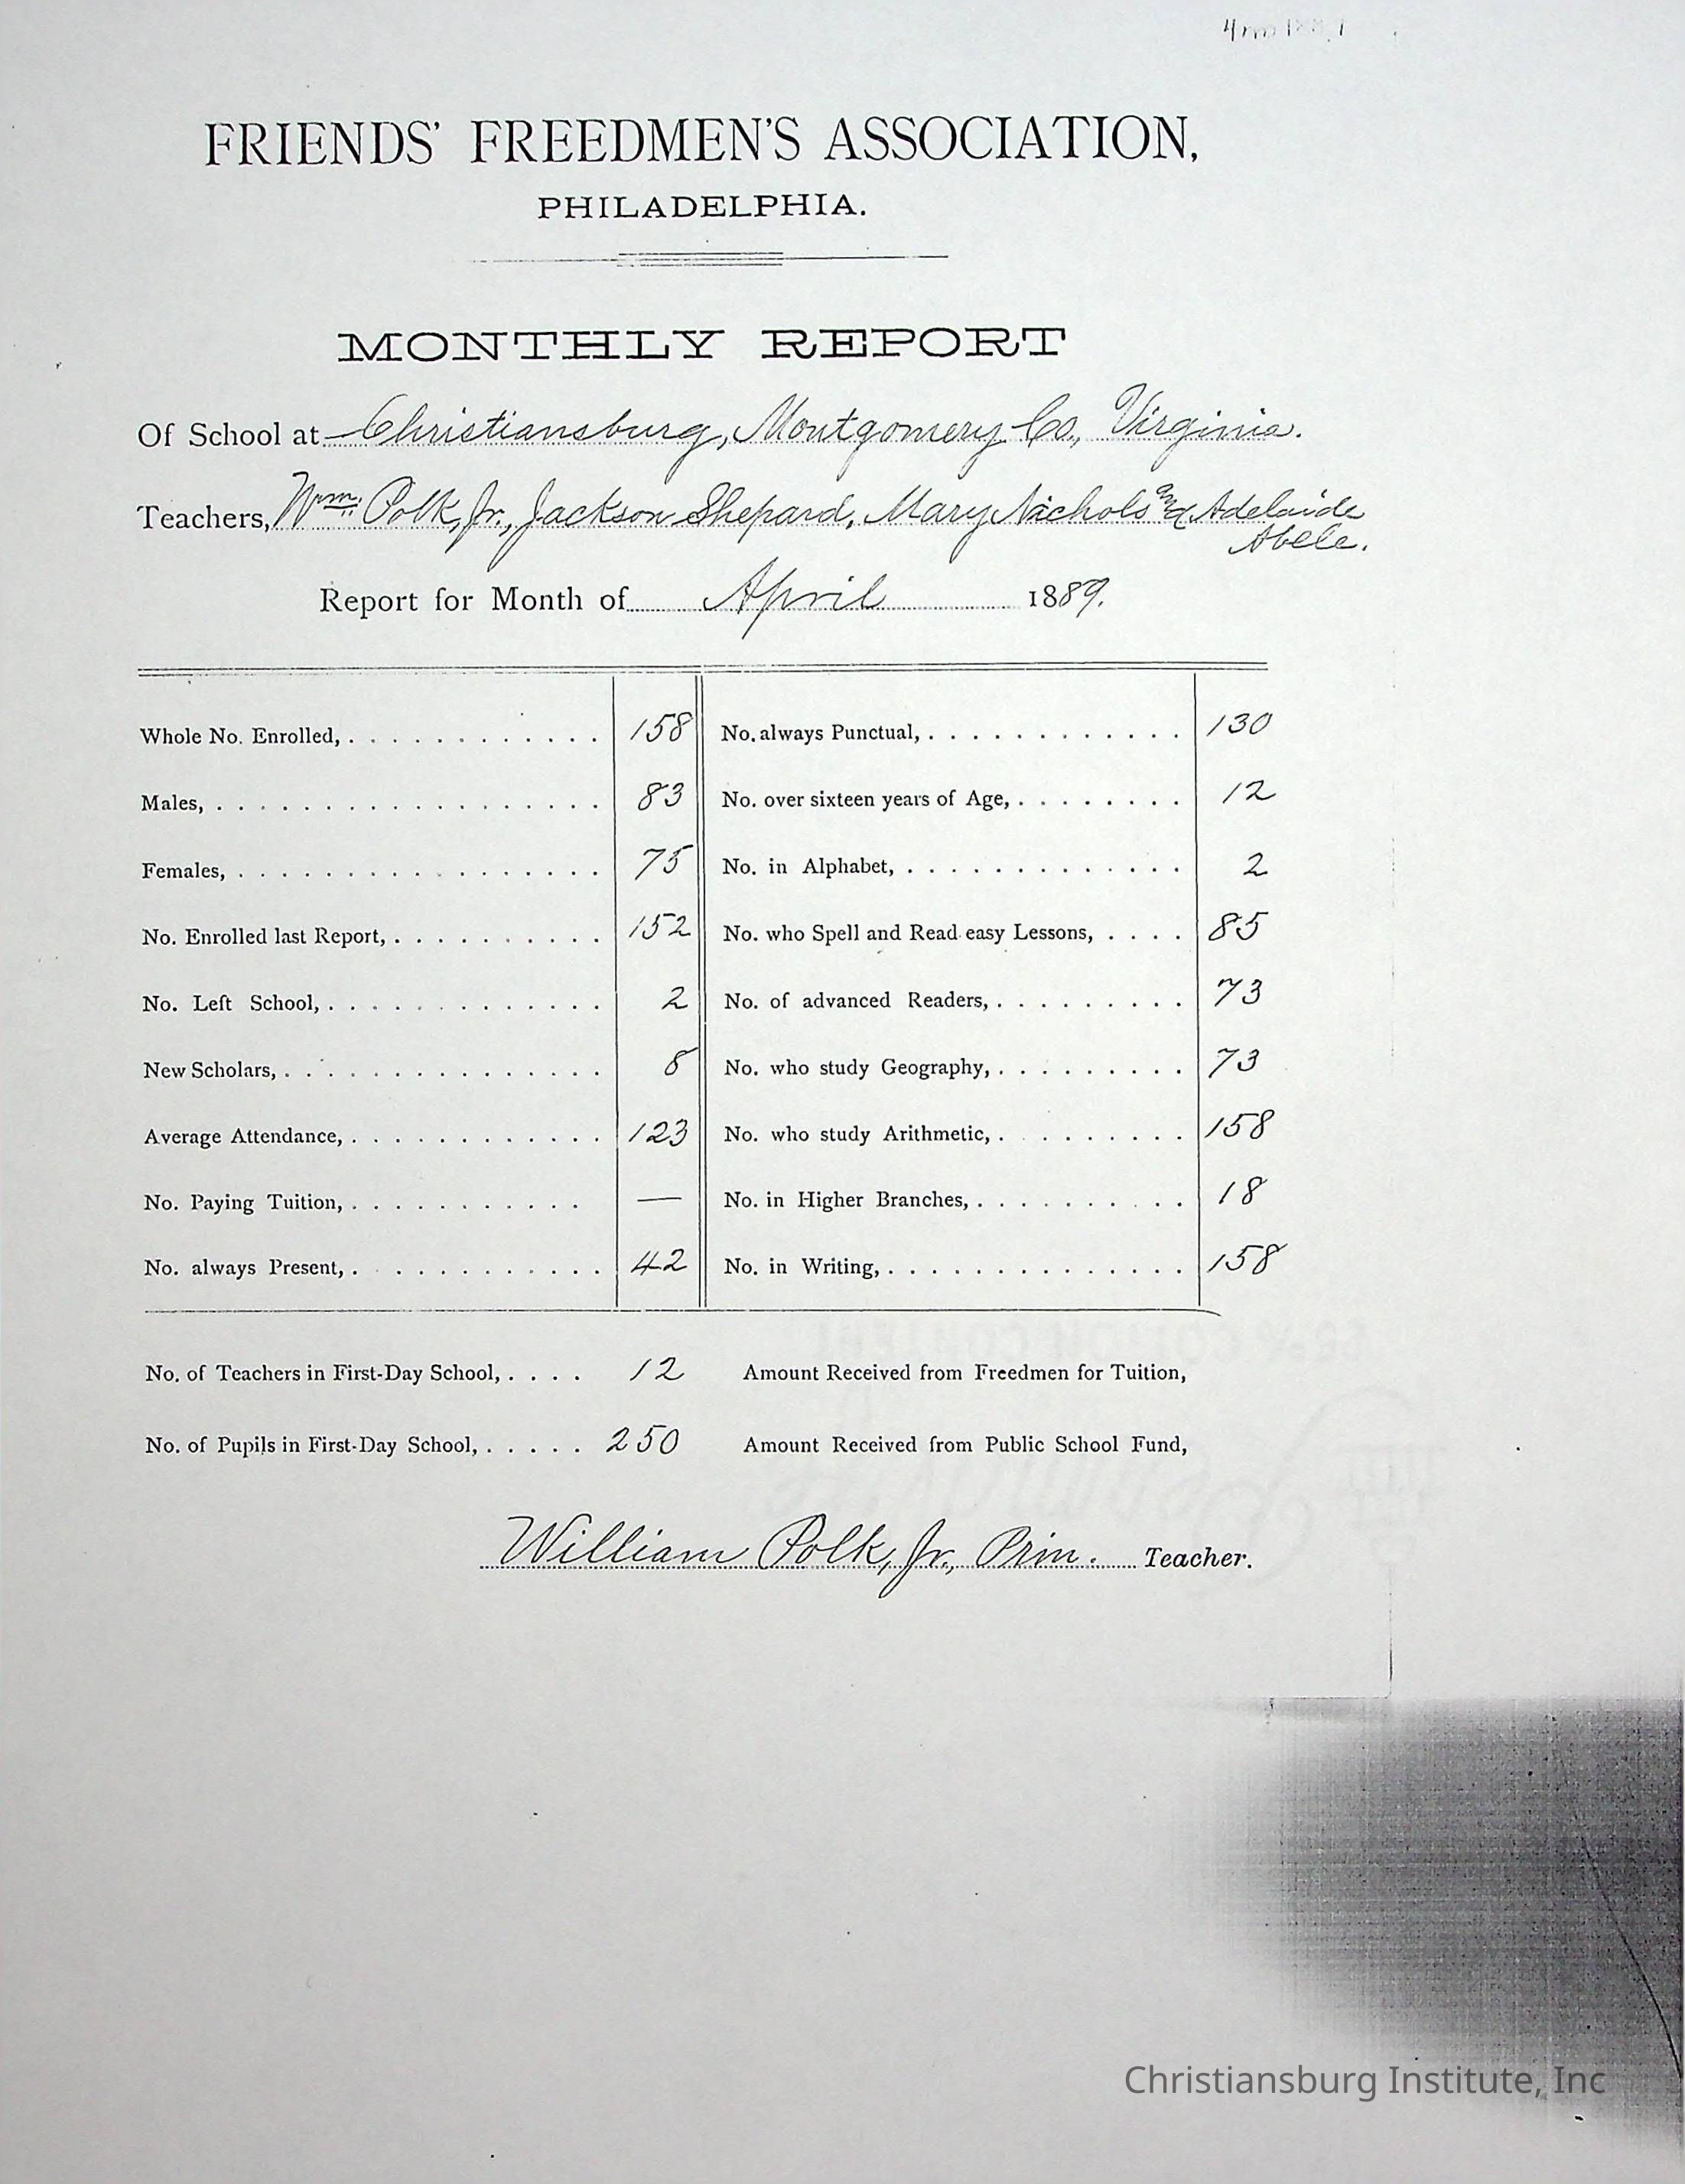 FRIENDS' FREEDMEN'S ASSOCIATION,
PHILADELPHIA.
MONTHLY REPORT
Of School at Christiansburg, Montgomery Co., Virginia.
Teachers, Wm. Polk, Jr., Jackson Shepard, Mary Nichols and Adelaide
Abele.
Report for Month of April 1889.
Whole No. Enrolled, 158 No. always Punctual, 130
Males, 83 No. over sixteen years of Age, 12
Females, 75 No. in Alphabet, 2
No. Enrolled last Report, 152 No. who Spell and Read easy Lessons, 85
No. Left School, 2 No. of advanced Readers, 73
New Scholars, 8 No. who study Geography, 73
Average Attendance, 123 No. who study Arithmetic, 158
No. Paying Tuition, — No. in Higher Branches, 18
No. always Present, 42 No. in Writing, 158
No. of Teachers in First-Day School, 12 Amount Received from Freedmen for Tuition,
No. of Pupils in First-Day School, 250 Amount Received from Public School Fund,
William Polk, Jr., Prin. Teacher.
Christiansburg Institute, Inc